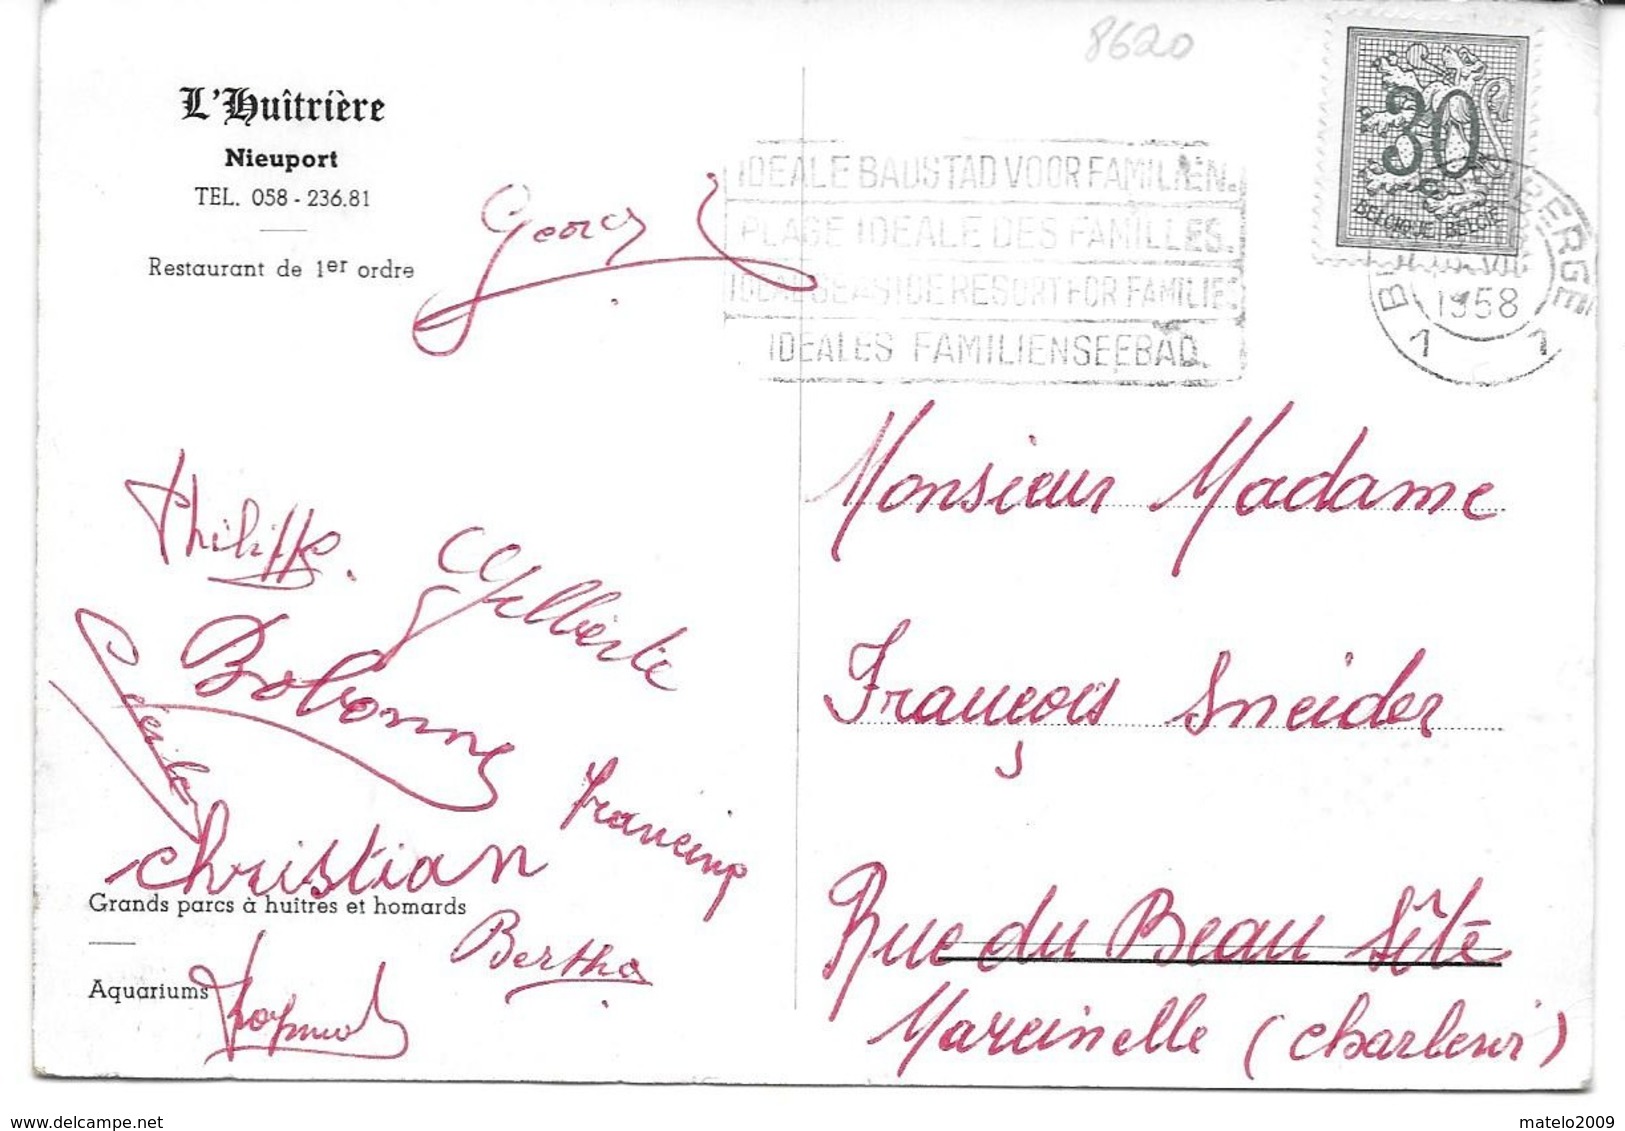 8620
L'Huîtrière
Nieuport
TEL. 058 - 236.81
Restaurant de 1er ordre
IDEALE BADSTAD VOOR FAMILIEN.
PLAGE IDEALE DES FAMILLES.
IDEAL SEASIDE RESORT FOR FAMILIE
IDEALES FAMILIENSEEBAD.
30
BELGIQUE BELGIE
B BERGE
1958
1 1
Georges
Philippe.
Gilberte
Bobonne
Francine
Christian
Grands parcs à huîtres et homards
Bertha
Aquariums
Raymond
Monsieur Madame
François Sneider
Rue du Beau Site
Marcinelle (Charleroi)
matelo2009